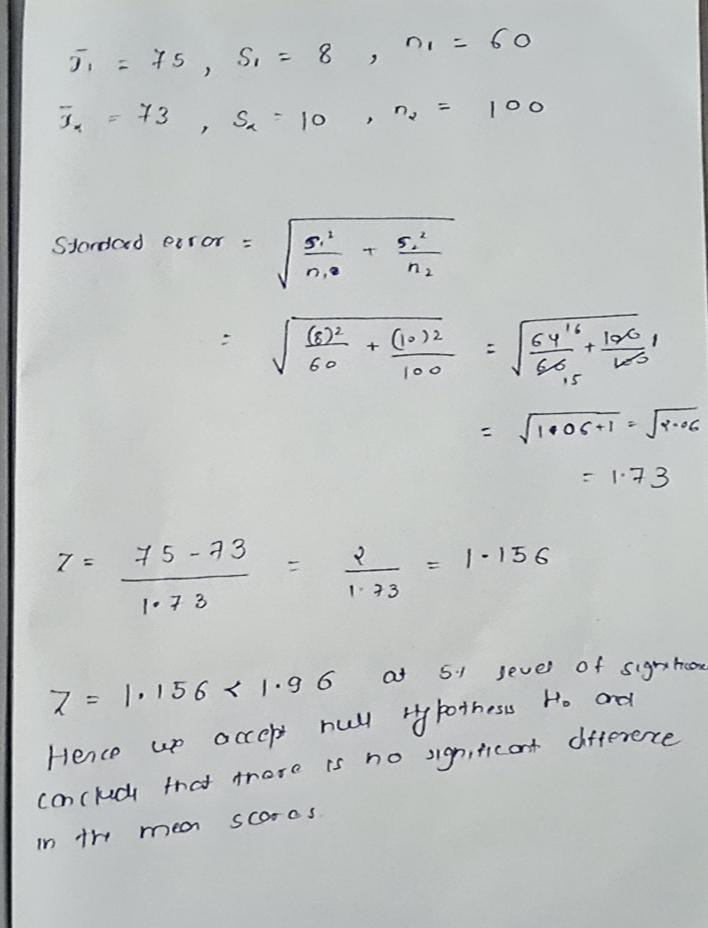 x̄₁ = 75, S₁ = 8, n₁ = 60
x̄₂ = 73, S₂ = 10, n₂ = 100
Standard error = √(S₁²/n₁ + S₂²/n₂)
= √((8)²/60 + (10)2/100) = √(64 16/60 15 + 100/100 1)
= √1.06+1 = √2.06
= 1.73
Z = 75-73/1.73 = 2/1.73 = 1.156
Z = 1.156 < 1.96 at 5% level of significance
Hence we accept null Hypothesis H₀ and
conclude that there is no significant difference
in the mean scores.